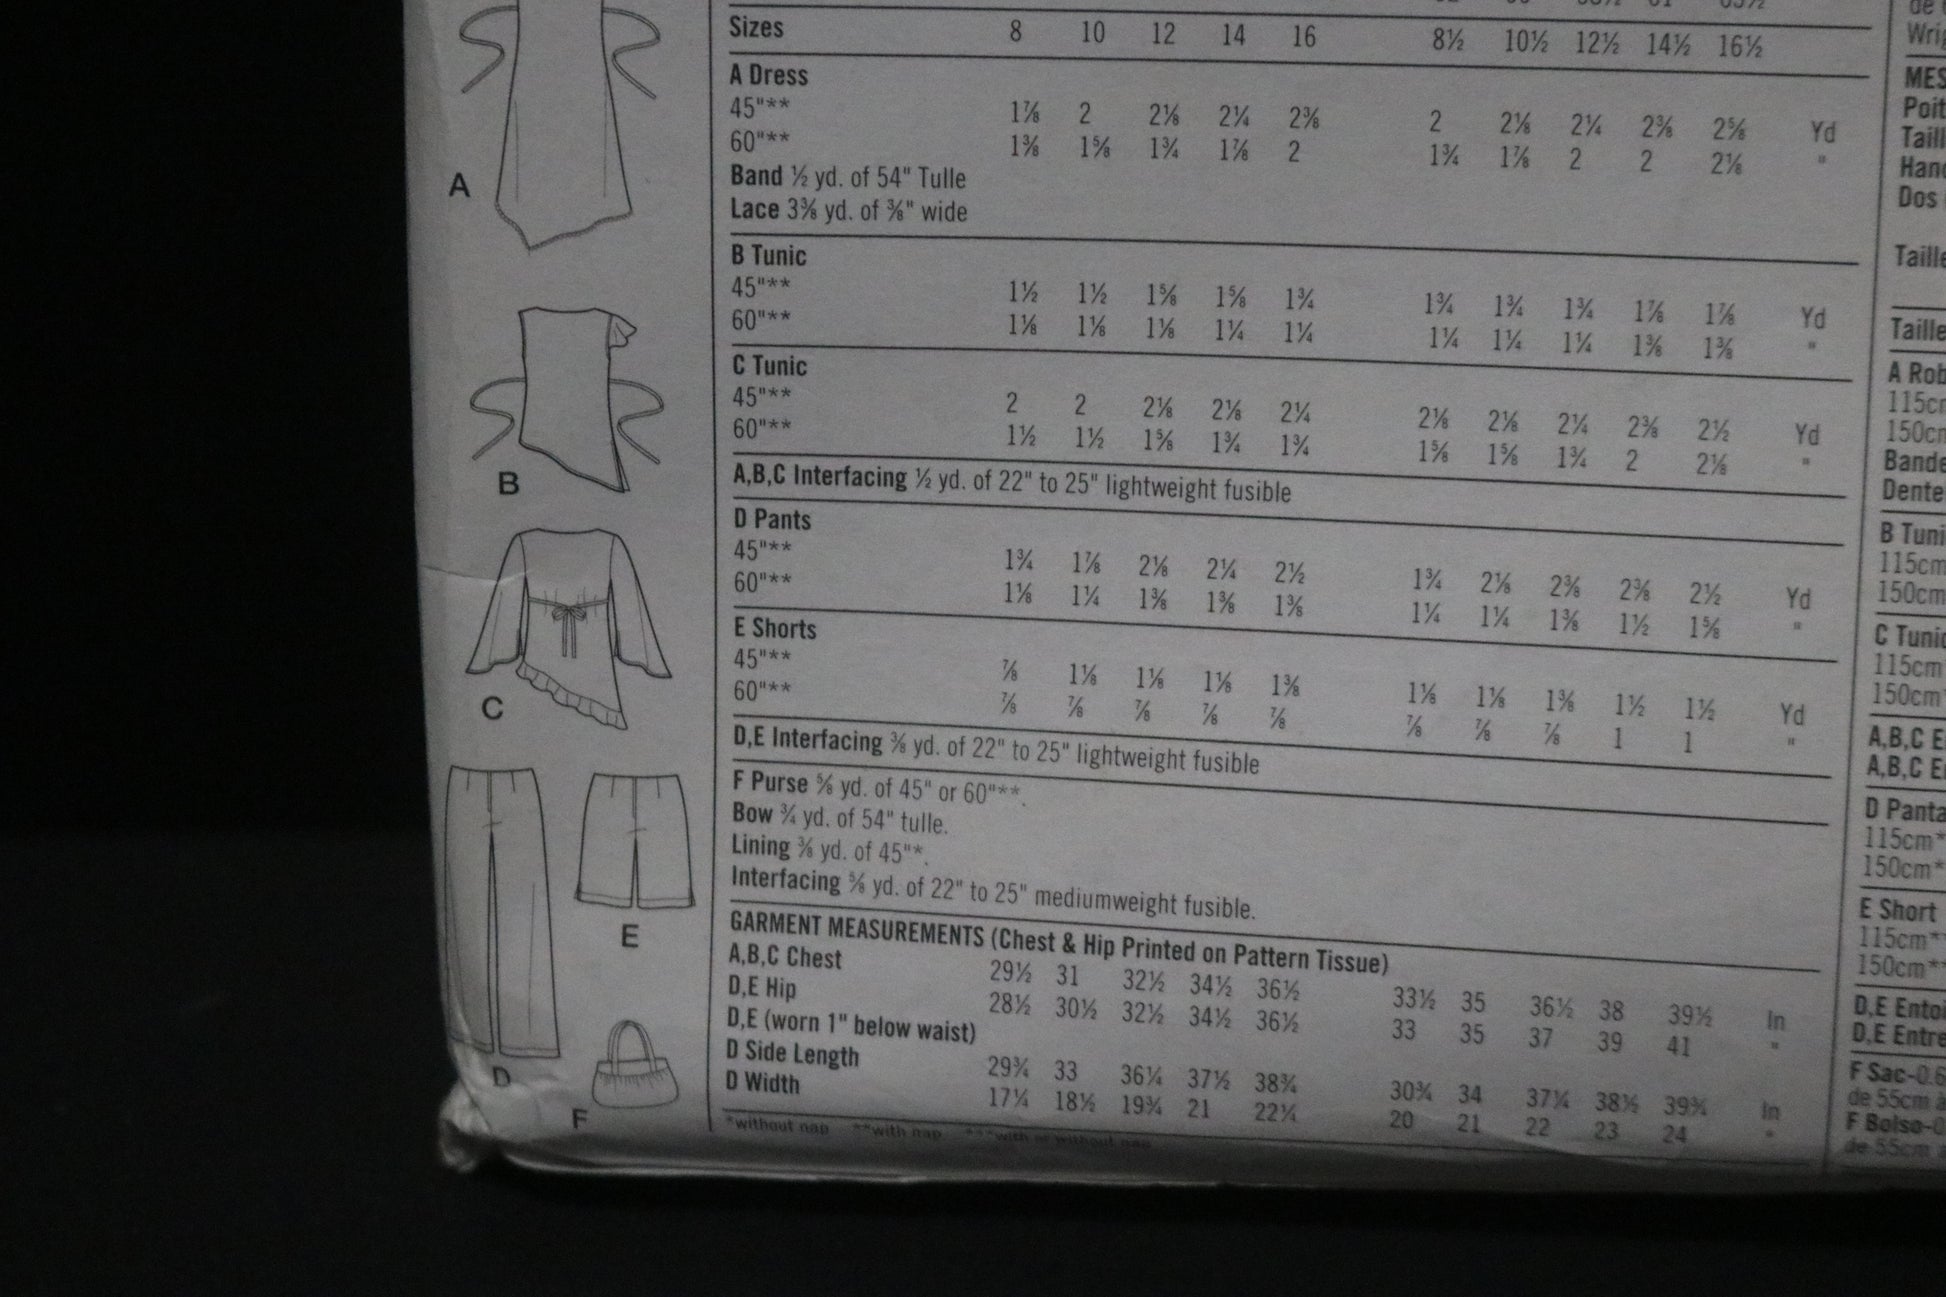 Sizes 8 10 12 14 16 8½ 10½ 12½ 14½ 16½
A Dress
45"** 1⅞ 2 2⅛ 2¼ 2⅜ 2 2⅛ 2¼ 2⅜ 2⅝ Yd
60"** 1⅜ 1⅝ 1¾ 1⅞ 2 1¾ 1⅞ 2 2 2⅛ "
Band ½ yd. of 54" Tulle
Lace 3⅜ yd. of ⅜" wide
B Tunic
45"** 1½ 1½ 1⅝ 1⅝ 1¾ 1¾ 1¾ 1¾ 1⅞ 1⅞ Yd
60"** 1⅛ 1⅛ 1⅛ 1¼ 1¼ 1¼ 1¼ 1¼ 1⅜ 1⅜ "
C Tunic
45"** 2 2 2⅛ 2⅛ 2¼ 2⅛ 2⅛ 2¼ 2⅜ 2½ Yd
60"** 1½ 1½ 1⅝ 1¾ 1¾ 1⅝ 1⅝ 1¾ 2 2⅛ "
A,B,C Interfacing ½ yd. of 22" to 25" lightweight fusible
D Pants
45"** 1¾ 1⅞ 2⅛ 2¼ 2½ 1¾ 2⅛ 2⅜ 2⅜ 2½ Yd
60"** 1⅛ 1¼ 1⅜ 1⅜ 1⅜ 1¼ 1¼ 1⅜ 1½ 1⅝ "
E Shorts
45"** ⅞ 1⅛ 1⅛ 1⅛ 1⅜ 1⅛ 1⅛ 1⅜ 1½ 1½ Yd
60"** ⅞ ⅞ ⅞ ⅞ ⅞ ⅞ ⅞ ⅞ 1 1 "
D,E Interfacing ⅜ yd. of 22" to 25" lightweight fusible
F Purse ⅝ yd. of 45" or 60"**.
Bow ¾ yd. of 54" tulle.
Lining ⅜ yd. of 45"*.
Interfacing ⅝ yd. of 22" to 25" mediumweight fusible.
GARMENT MEASUREMENTS (Chest & Hip Printed on Pattern Tissue)
A,B,C Chest 29½ 31 32½ 34½ 36½ 33½ 35 36½ 38 39½ In
D,E Hip 28½ 30½ 32½ 34½ 36½ 33 35 37 39 41 "
D,E (worn 1" below waist)
D Side Length 29¾ 33 36¼ 37½ 38¾ 30¾ 34 37¼ 38½ 39¾ In
D Width 17¼ 18½ 19¾ 21 22¼ 20 21 22 23 24 "
*without nap **with nap ***with or without nap
A
B
C
D
E
F
MES
Poit
Taill
Dos
Taille
Taille
A Rob
115cm
150cm
Bande
Dente
B Tuni
115cm
150cm
C Tunic
115cm
150cm*
A,B,C E
A,B,C E
D Panta
115cm*
150cm*
E Short
115cm**
150cm**
D,E Entoi
D,E Entre
F Sac-0.6
de 55cm à
F Bolso-0
de 55cm a